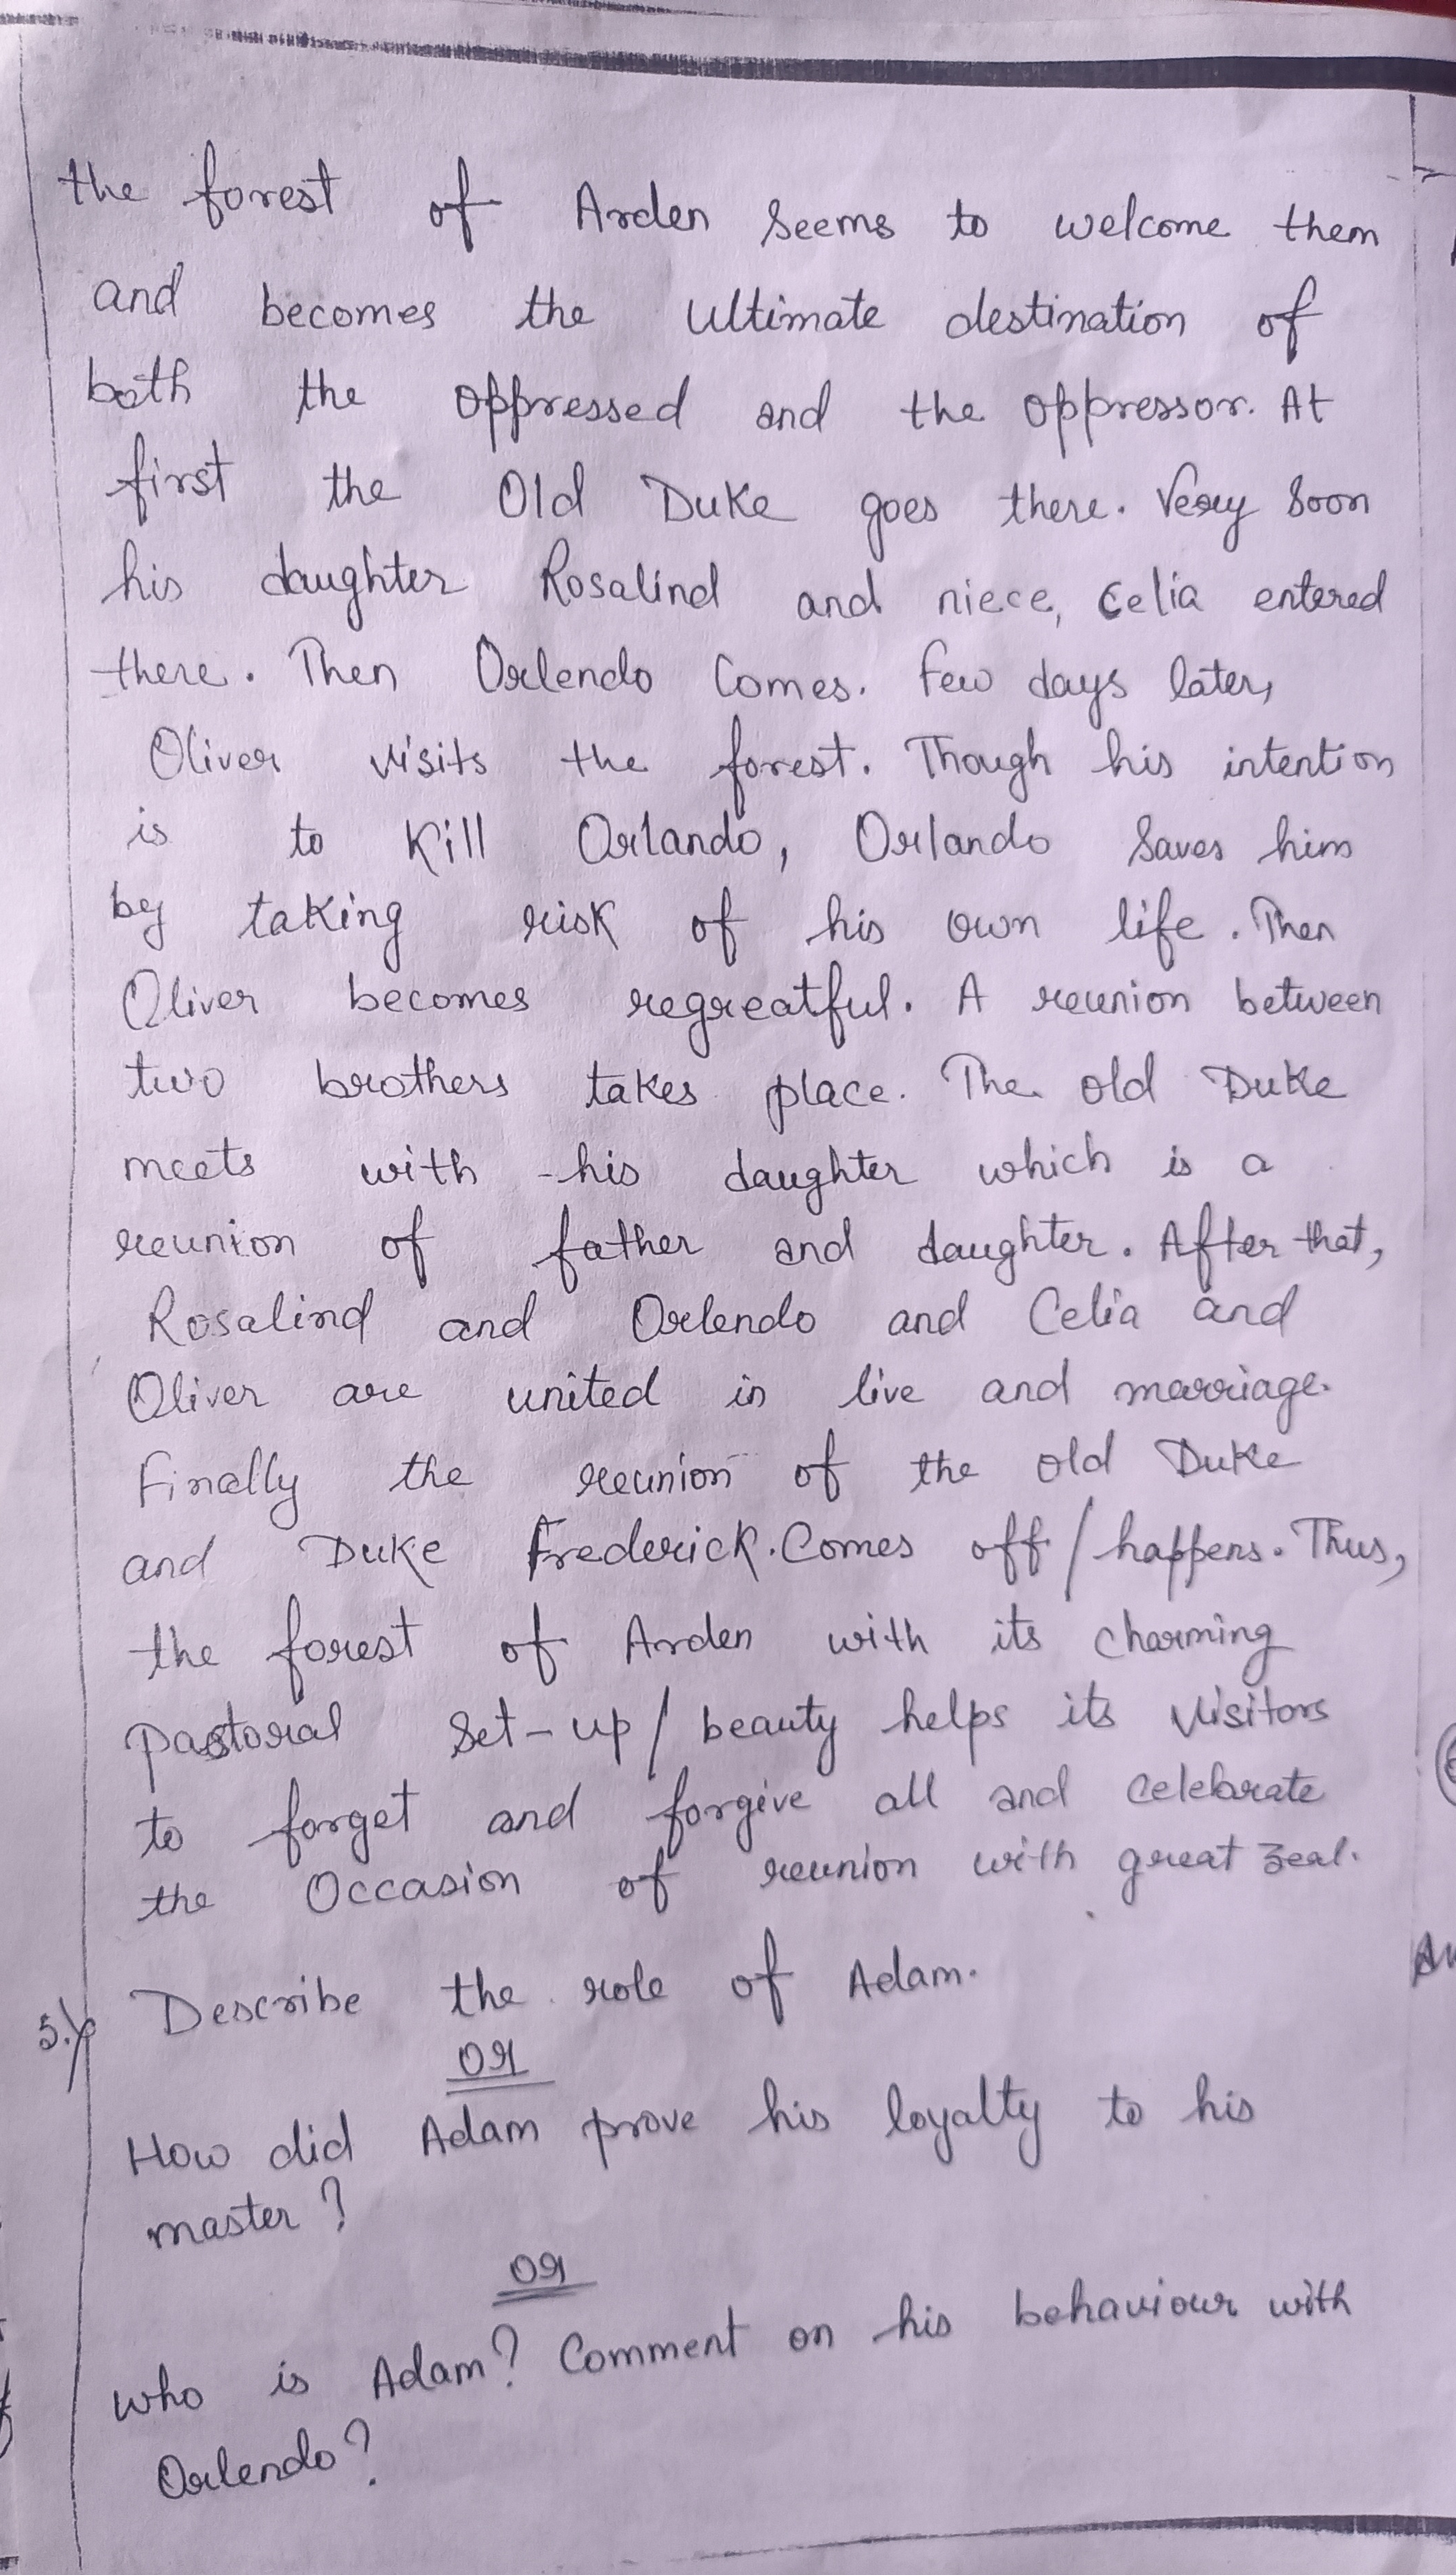 the forest of Arden seems to welcome them
and becomes the ultimate destination of
both the oppressed and the oppressor. At
first the Old Duke goes there. Very soon
his daughter Rosalind and niece, Celia entered
there. Then Orlendo comes. Few days later,
Oliver visits the forest. Though his intention
is to kill Orlando, Orlando saves him
by taking risk of his own life. Then
Oliver becomes regreatful. A reunion between
two brothers takes place. The old Duke
meets with his daughter which is a
reunion of father and daughter. After that,
Rosalind and Orlendo and Celia and
Oliver are united in live and marriage.
Finally the reunion of the old Duke
and Duke Frederick. Comes off / happens. Thus,
the forest of Arden with its charming
pastoral set-up / beauty helps its visitors
to forget and forgive all and celebrate
the occasion of reunion with great zeal.
5. Describe the role of Adam.
or
How did Adam prove his loyalty to his
master?
or
Who is Adam? Comment on his behaviour with
Orlendo?